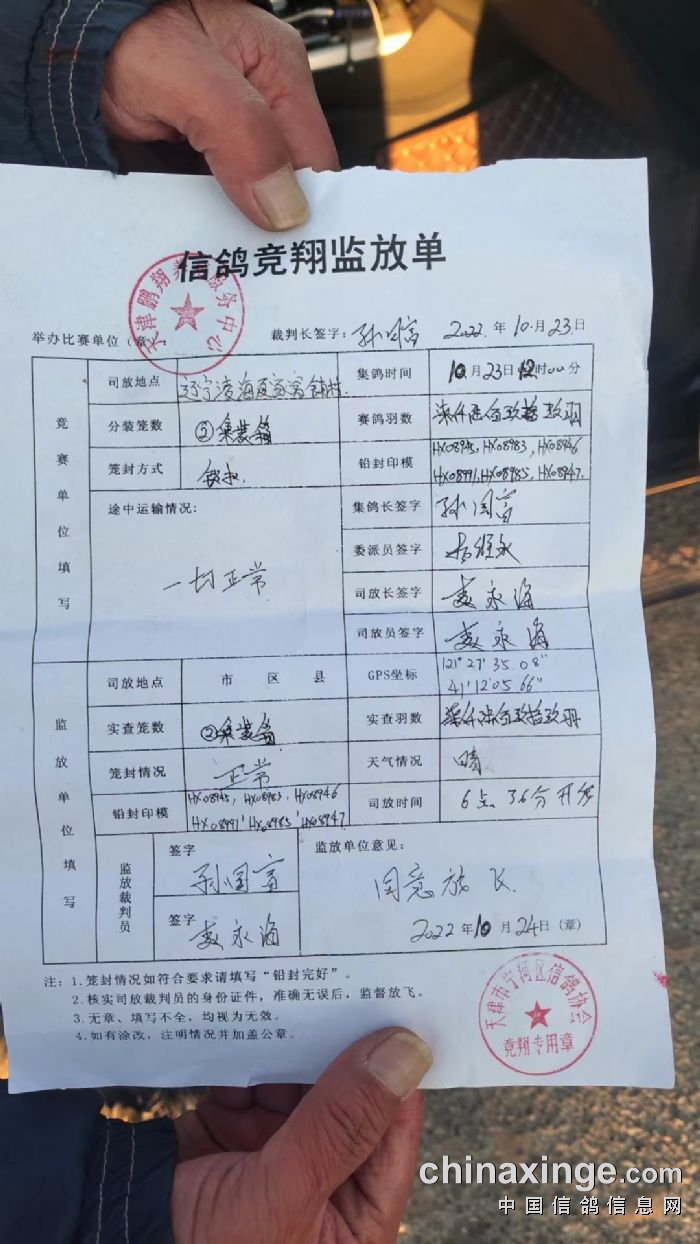 信鸽竞翔监放单
天津鹏翔 服务中心
举办比赛单位(章) 裁判长签字: 孙国富 2022.年10.月23日
竞赛单位填写
司放地点 辽宁凌海 集鸽时间 10月23日12时00分
分装笼数 ②集装箱 赛鸽羽数 柒仟陆佰玖拾玖羽
笼封方式 铅封 铅封印模 HX08945, HX08983, HX08946
HX08991, HX08985, HX08947.
途中运输情况: 集鸽长签字 孙国富
一切正常 委派员签字
司放长签字 麦永海
司放员签字 麦永海
监放单位填写
司放地点 市 区 县 GPS坐标 121°27′35.08″
41°12′05.66″
实查笼数 ②集装箱 实查羽数 柒仟陆佰玖拾玖羽
笼封情况 正常 天气情况 晴
铅封印模 HX08945, HX08983, HX08946
HX08991, HX08985, HX08947. 司放时间 6点36分开笼
监放裁判员 签字 孙国富 监放单位意见:
同意放飞.
签字 麦永海 2022年10月24日(章)
注:1.笼封情况如符合要求请填写“铅封完好”。
2.核实司放裁判员的身份证件,准确无误后,监督放飞。
3.无章、填写不全,均视为无效。
4.如有涂改,注明情况并加盖公章。
天津市宁河区信鸽协会
竞翔专用章
chinaxinge.com
中国信鸽信息网